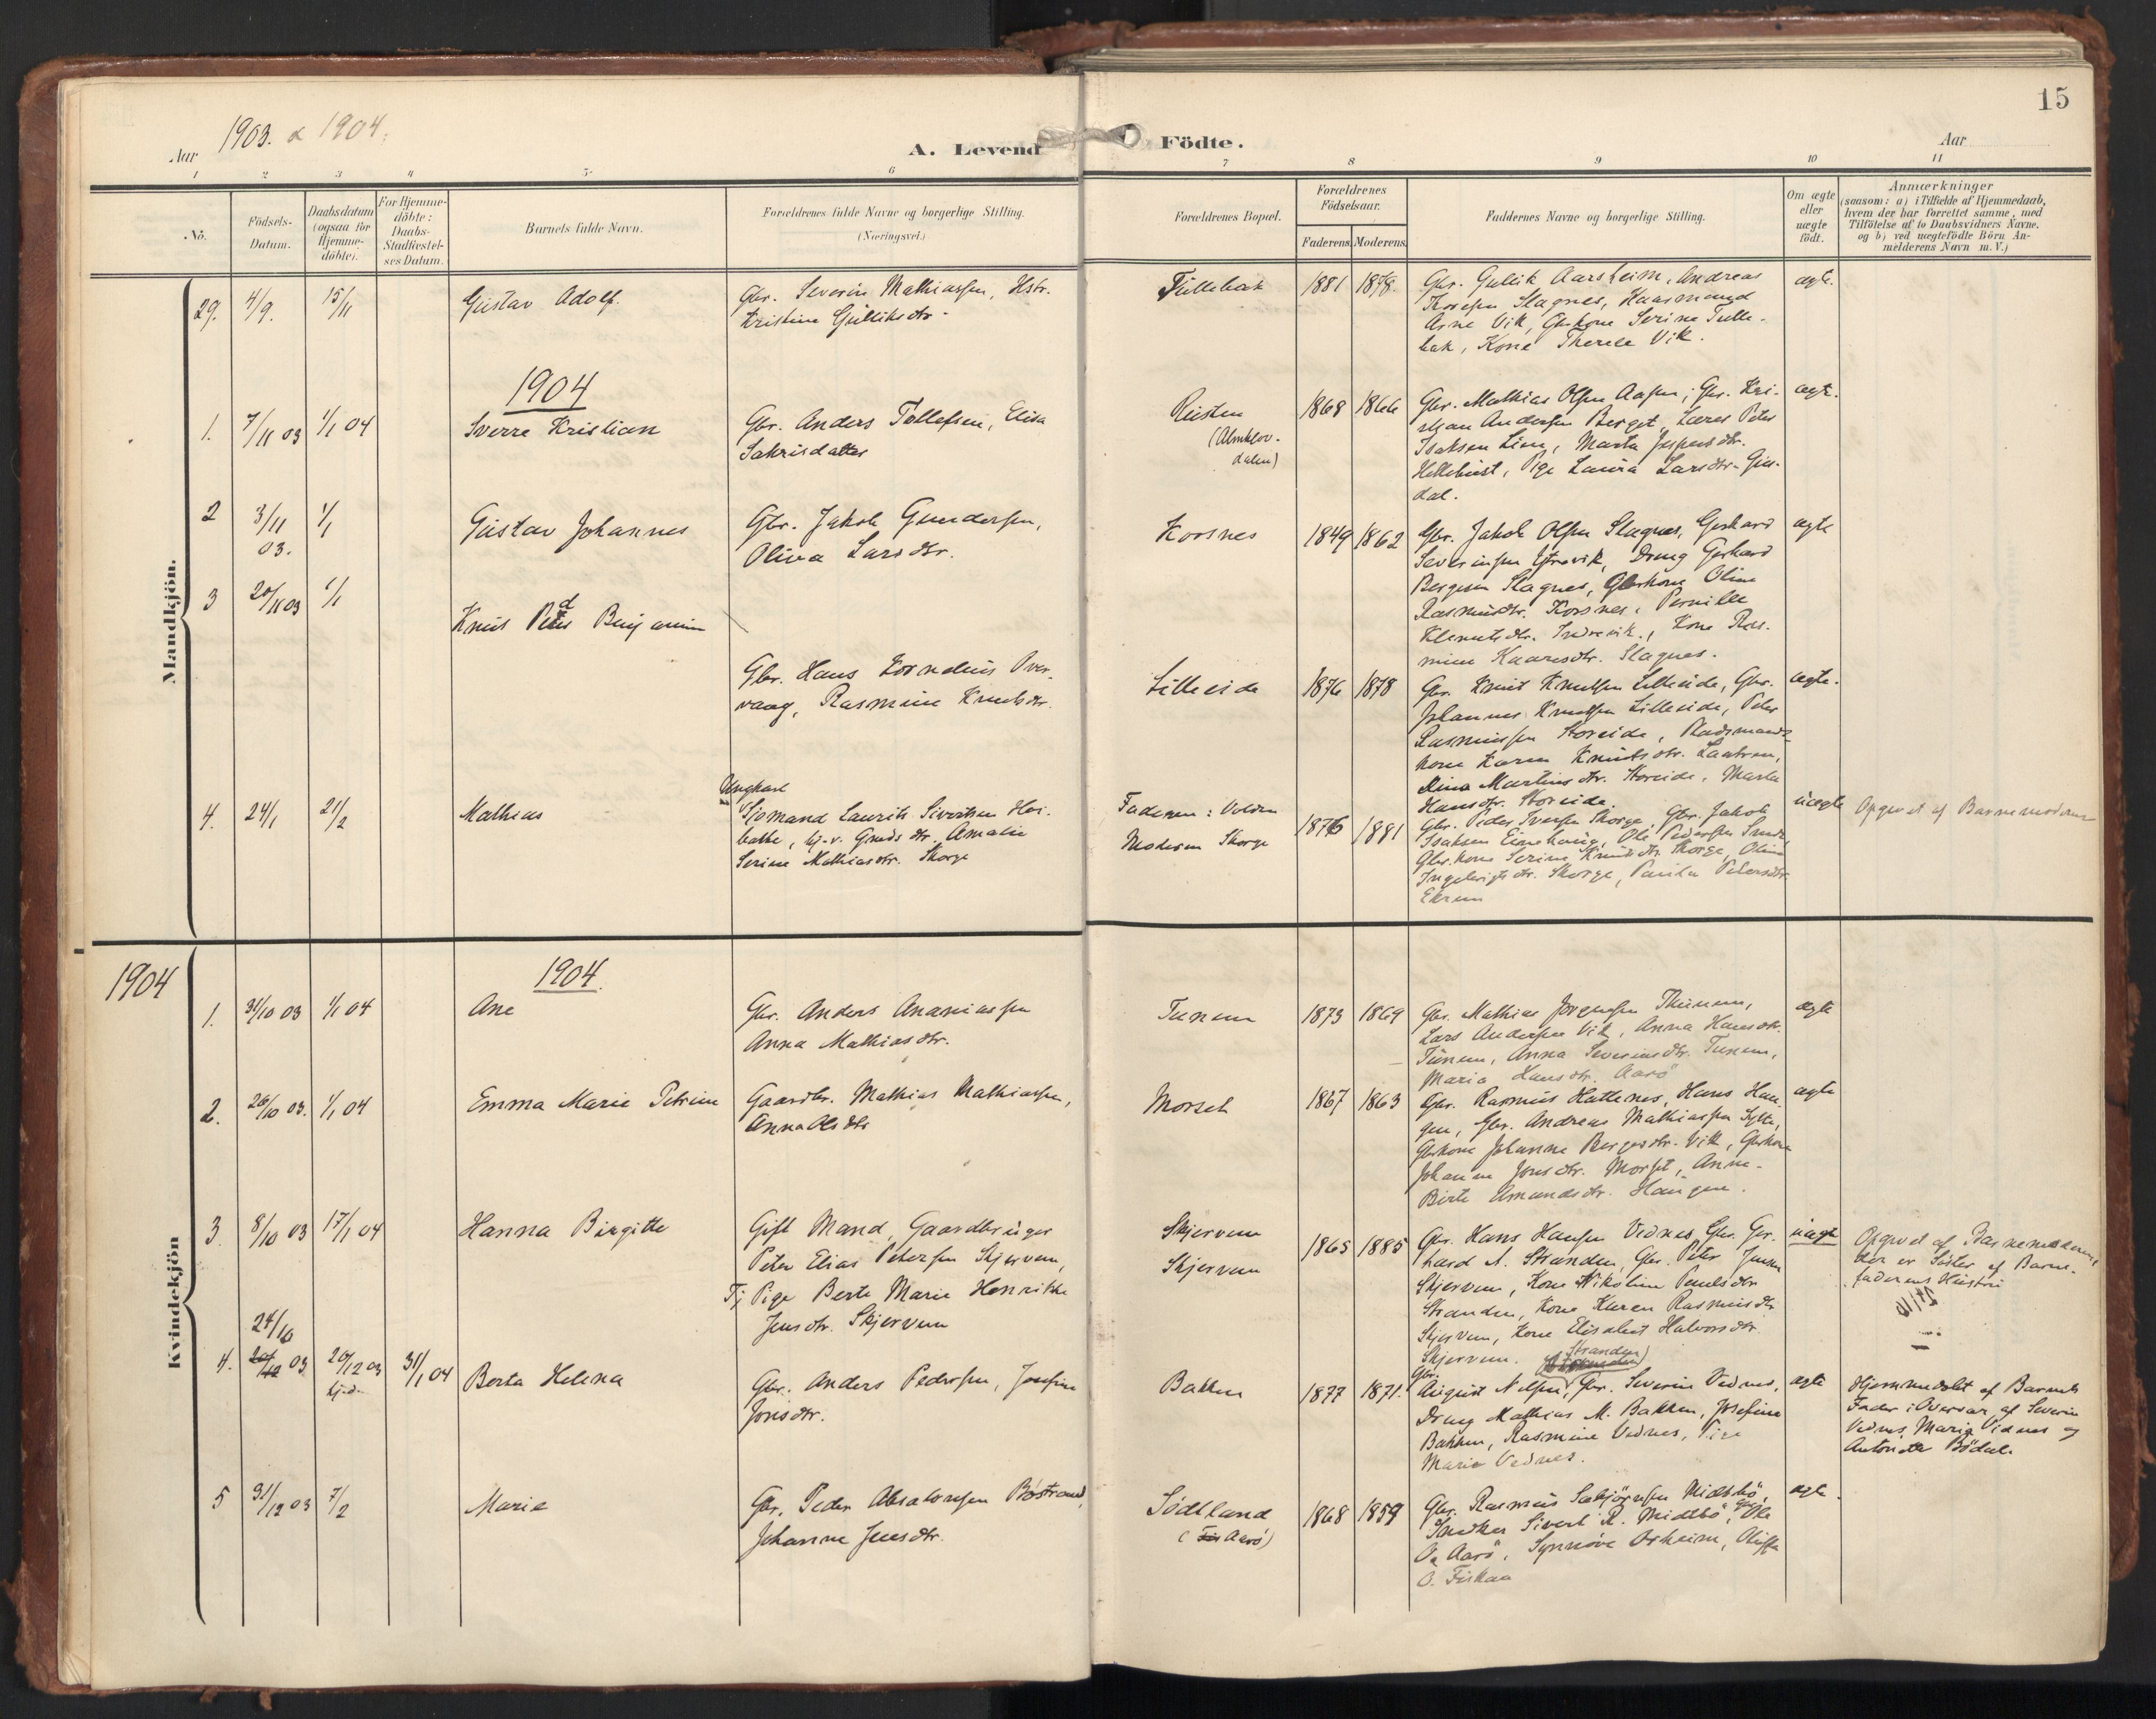 15
Aar 1903. & 1904.
A. Levende Födte.
Aar
1 2 3 4 5 6 7 8 9 10 11
No.
Födsels-Datum.
Daabsdatum (ogsaa for Hjemme-döbte).
For Hjemme-döbte: Daabs-Stadfæstel-ses Datum.
Barnets fulde Navn.
Forældrenes fulde Navne og borgerlige Stilling. (Næringsvei.)
Forældrenes Bopæl.
Forældrenes Födselsaar.
Faderens. Moderens.
Faddernes Navne og borgerlige Stilling.
Om ægte eller uægte födt.
Anmærkninger
(saasom: a) i Tilfælde af Hjemmedaab,
hvem der har forrettet samme, med
Tilföielse af to Daabsvidners Navne.
og b) ved uægtefödte Börn An-
melderens Navn m. V.)
Mandkjön.
29. 4/9. 15/11 Gustav Adolf.
Gbr. Severin Mathiassen, Hstr.
Kristine Gulliksdtr.
Tullebak 1881 1878.
Gbr. Gullik Aarsheim, Andreas
Slagnes, Huusmand
Arne Vik, Gbrkone Serine Tulle-
bak, Kone Therese Vik.
ægte.
1904
1. 7/11 03 1/1 04 Sverre Kristian
Gbr. Anders Tollefsen, Elisa
Sakrisdatter
Rusten
(Almklov-
dalen)
1868 1866
Gbr. Mathias Olsen Aasen, Gbr. Kri-
stian Andersen Berget, Lærer Peter
Isaksen Lien, Marta Jespersdtr.
Hellebust, Pige Laura Larsdtr. Gus-
dal.
ægte.
2 3/11 03. 1/1 Gustav Johannes
Gbr. Jakob Gundersen,
Oliva Larsdtr.
Korsnes 1849 1862
Gbr. Jakob Olsen Slagnes, Gerhard
Severinsen Ytrevik, Dreng Gerhard
Bergesen Slagnes, Gbrkone Oline
Rasmusdtr. Korsnes, Pernille
Klemetsdtr. Indrevik, Kone Ras-
mine Kaaresdtr. Slagnes.
ægte
3 20/11 03 1/1 Knut Peder Benjamin
Gbr. Hans Kornelius Over-
vaag, Rasmine Knutsdtr.
Lilleeide 1876 1878
Gbr. Knut Knutsen Lilleeide, Gbr.
Johannes Knutsen Lilleeide, Peter
Rasmussen Storeide, Pladsmands-
kone Karen Knutsdtr. Lantran,
Dina Martinsdtr. Storeide, Marta
Hansdtr. Storeide.
ægte.
4. 24/1 21/2 Mathias
Ungkarl
Sjømand Laurits Sivertsen Hei-
bakke, tj. v. Gmds dtr. Amalie
Serine Mathiasdtr. Skorge
Faderen: Volden
Moderen Skorge
1876 1881
Gbr. Peder Iversen Skorge, Gbr. Jakob
Isaksen Einehaug, Ole Pedersen
Gbr.kone Serine Knutsdtr. Skorge, Oline
Ingebrigtsdtr. Skorge, Paula Petersdtr.
Ekrem
uægte
Opgivet af Barnemoderen
Kvindekjön
1904
1904.
1. 31/10 03 1/1 04 Ane
Gbr. Anders Ananiassen
Anna Mathiasdtr.
Tunem 1873 1869
Gbr. Mathias Jørgensen Thunem,
Lars Andersen Vik, Anna Hansdtr.
Tunem, Anna Severinsdtr. Tunem,
Maria Hansdtr. Aarö
ægte
2. 26/10 03. 1/1 04 Emma Marie Petrine
Gaardbr. Mathias Mathiassen,
Anna Olsdtr
Morset 1867 1863
Gbr. Rasmus Hatlenes, Hans Hau-
gen, Gbr. Andreas Mathiassen Sylte,
Gbrkone Johanne Bergesdtr. Vik, Gbrkone
Johanne Jonsdtr. Morset, Anne-
Birte Amundsdtr. Haugen.
ægte
3. 8/10 03 17/1 04 Hanna Birgitte
Gift Mand, Gaardbruger
Peter Elias Petersen Skjerven,
Tj Pige Berte Marie Henrikke
Jensdtr. Skjerven
Skjerven
Skjerven
1865 1885
Gbr. Hans Hansen Vednes, Gbr. Ger-
hard A. Stranden, Gbr. Peter Jensen
Skjerven, Kone Nikoline Paulsdtr
Stranden, Kone Karen Rasmusdtr
Skjerven, Kone Elisabet Halvorsdtr
Skjerven.
uægte
Opgivet af Barnemoderen,
der er Söster af Barne-
faderens Hustru
24/10
4. 20/12 03 20/12 03 hj.d. 31/1 04 Berta Helena
Gbr. Anders Pedersen, Josefine
Jonsdtr.
Bakken 1877 1871.
(Stranden)
Gbr. August Nilsen, Gbr. Severin Vednes,
Dreng Mathias M. Bakken, Josefine
Bakken, Rasmine Vednes, Pige
Marie Vednes.
ægte
Hjemmedøbt af Barnets
Fader i Overvær af Severin
Vednes, Marie Vednes og
Antonette Bödal.
5 31/12 03 7/2 Marie
Gbr. Peder Absalonsen Böstrand,
Johanne Jensdtr.
Södtland
(Aarö)
1868 1859
Gbr. Rasmus Midtbö,
Snedker Sivert R. Midtbö, Gbr. Ole
O. Aarö, Synnöve Osheim, Oliffa
O. Fiskaa
ægte.